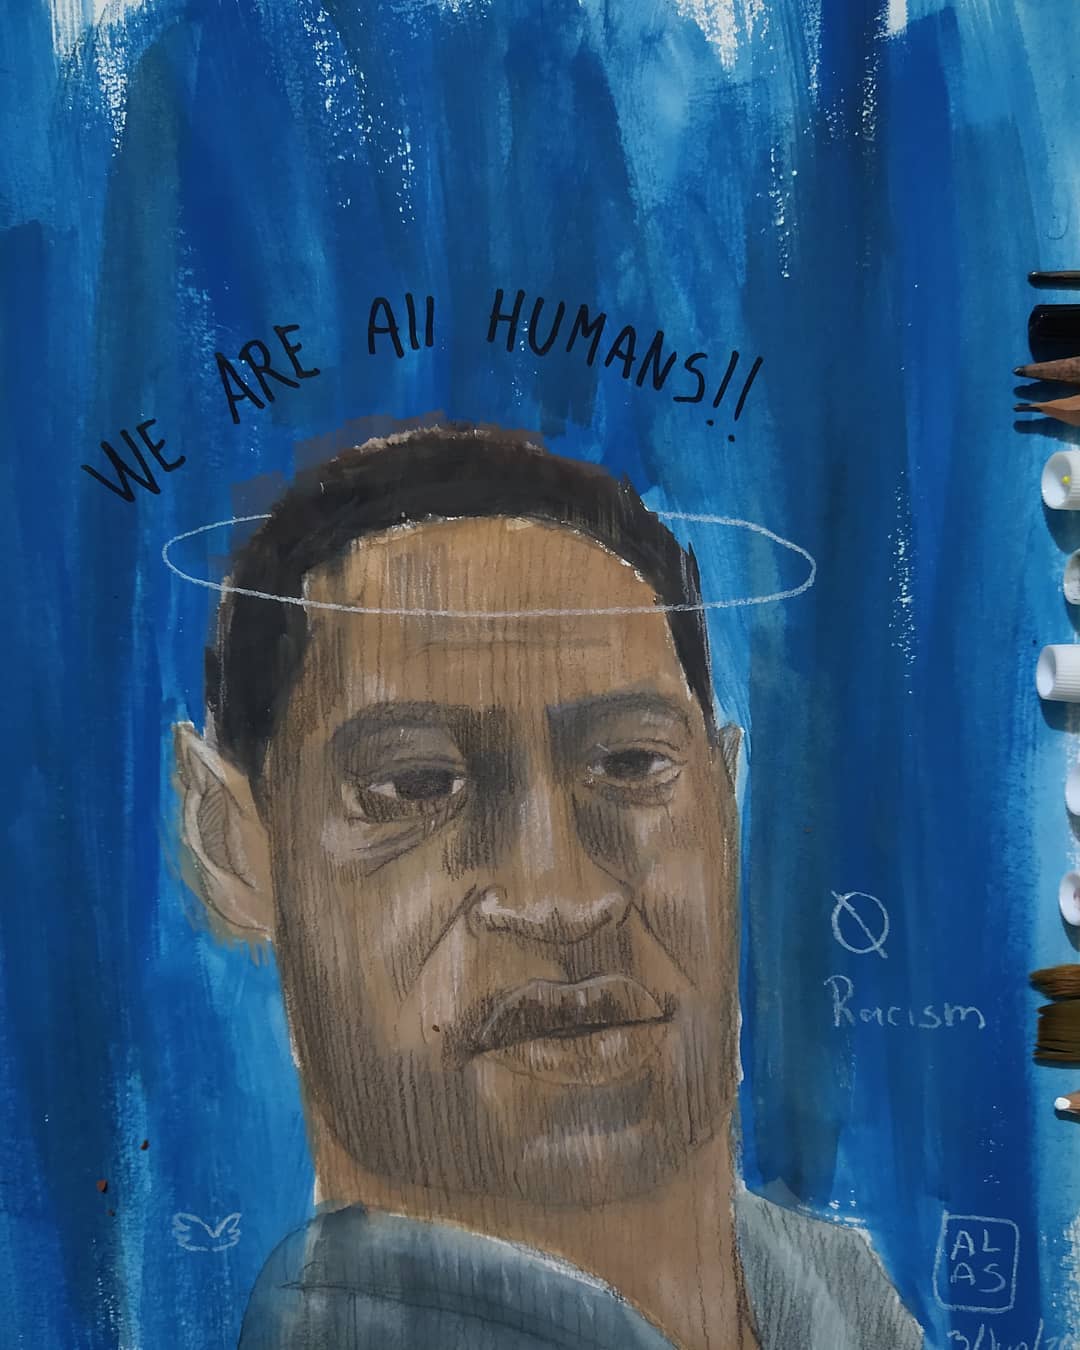 WE ARE All HUMANS!!
Ø
Racism
AL
AS